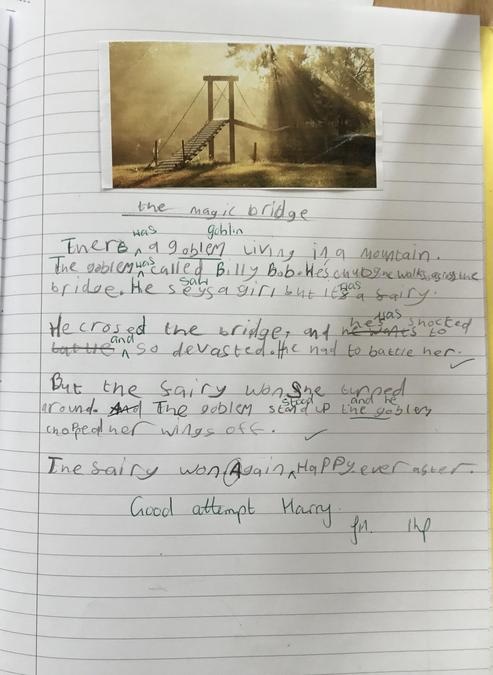 the magic bridge
was goblin
There a goblem living in a mountain.
was
The goblem called Billy Bob. He's chub he walks across the
saw was
bridge. He seys a girl but it's a fairy.
was
He crosed the bridge, and he's shocted
he wants to
and
battle so devasted. He had to battle her.
But the fairy won She turned
stood and he
around. And The goblem stand up the goblem
choped her wings off.
The fairy won Again Happy ever after.
Good attempt Harry.
1hp